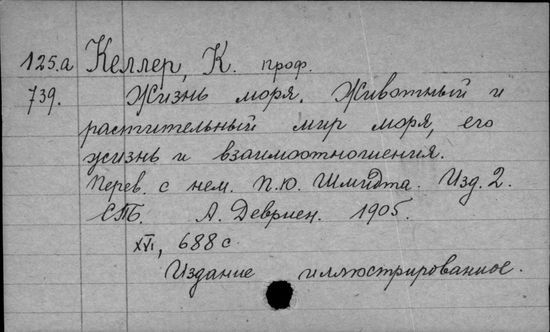 125.а Келлер, К. проф.
739. Жизнь моря. Животный и
растительный мир моря, его
жизнь и взаимоотношения.
Перев. с нем. П.Ю. Шмидта. Изд. 2.
СПБ. А. Девриен. 1905.
XVI, 688 с.
Издание иллюстрированное.